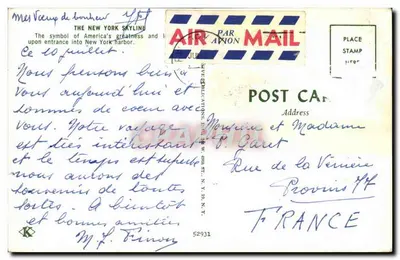 mes Voeux de bonheur
THE NEW YORK SKYLINE
The symbol of America's greatness and
upon entrance into New York harbor.
Ce 10 juillet.
Nous pensons bien à
vous aujourd'hui et
sommes de coeur avec
vous. Notre voyage
est très intéressant
et le temps est superbe
nous aurons des
souvenirs de toutes
sortes. A bientôt
et bonnes amitiés
AIR MAIL
PAR AVION
PLACE
STAMP
HERE
POST CAR
Address
Monsieur et Madame
Rue de la
Provins 77
FRANCE
K
52931